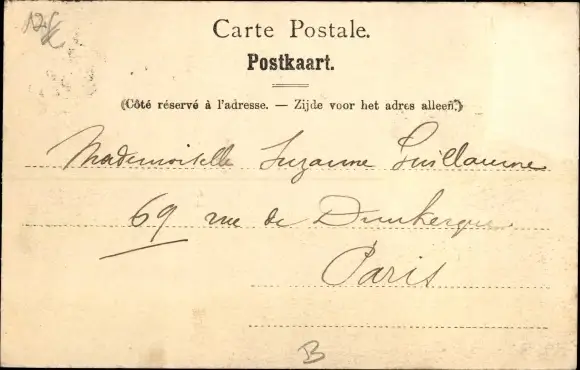 Carte Postale.
Postkaart.
(Côté réservé à l'adresse. — Zijde voor het adres alleen.)
Mademoiselle Suzanne Guillaume
69 rue de Dunkerque
Paris
B